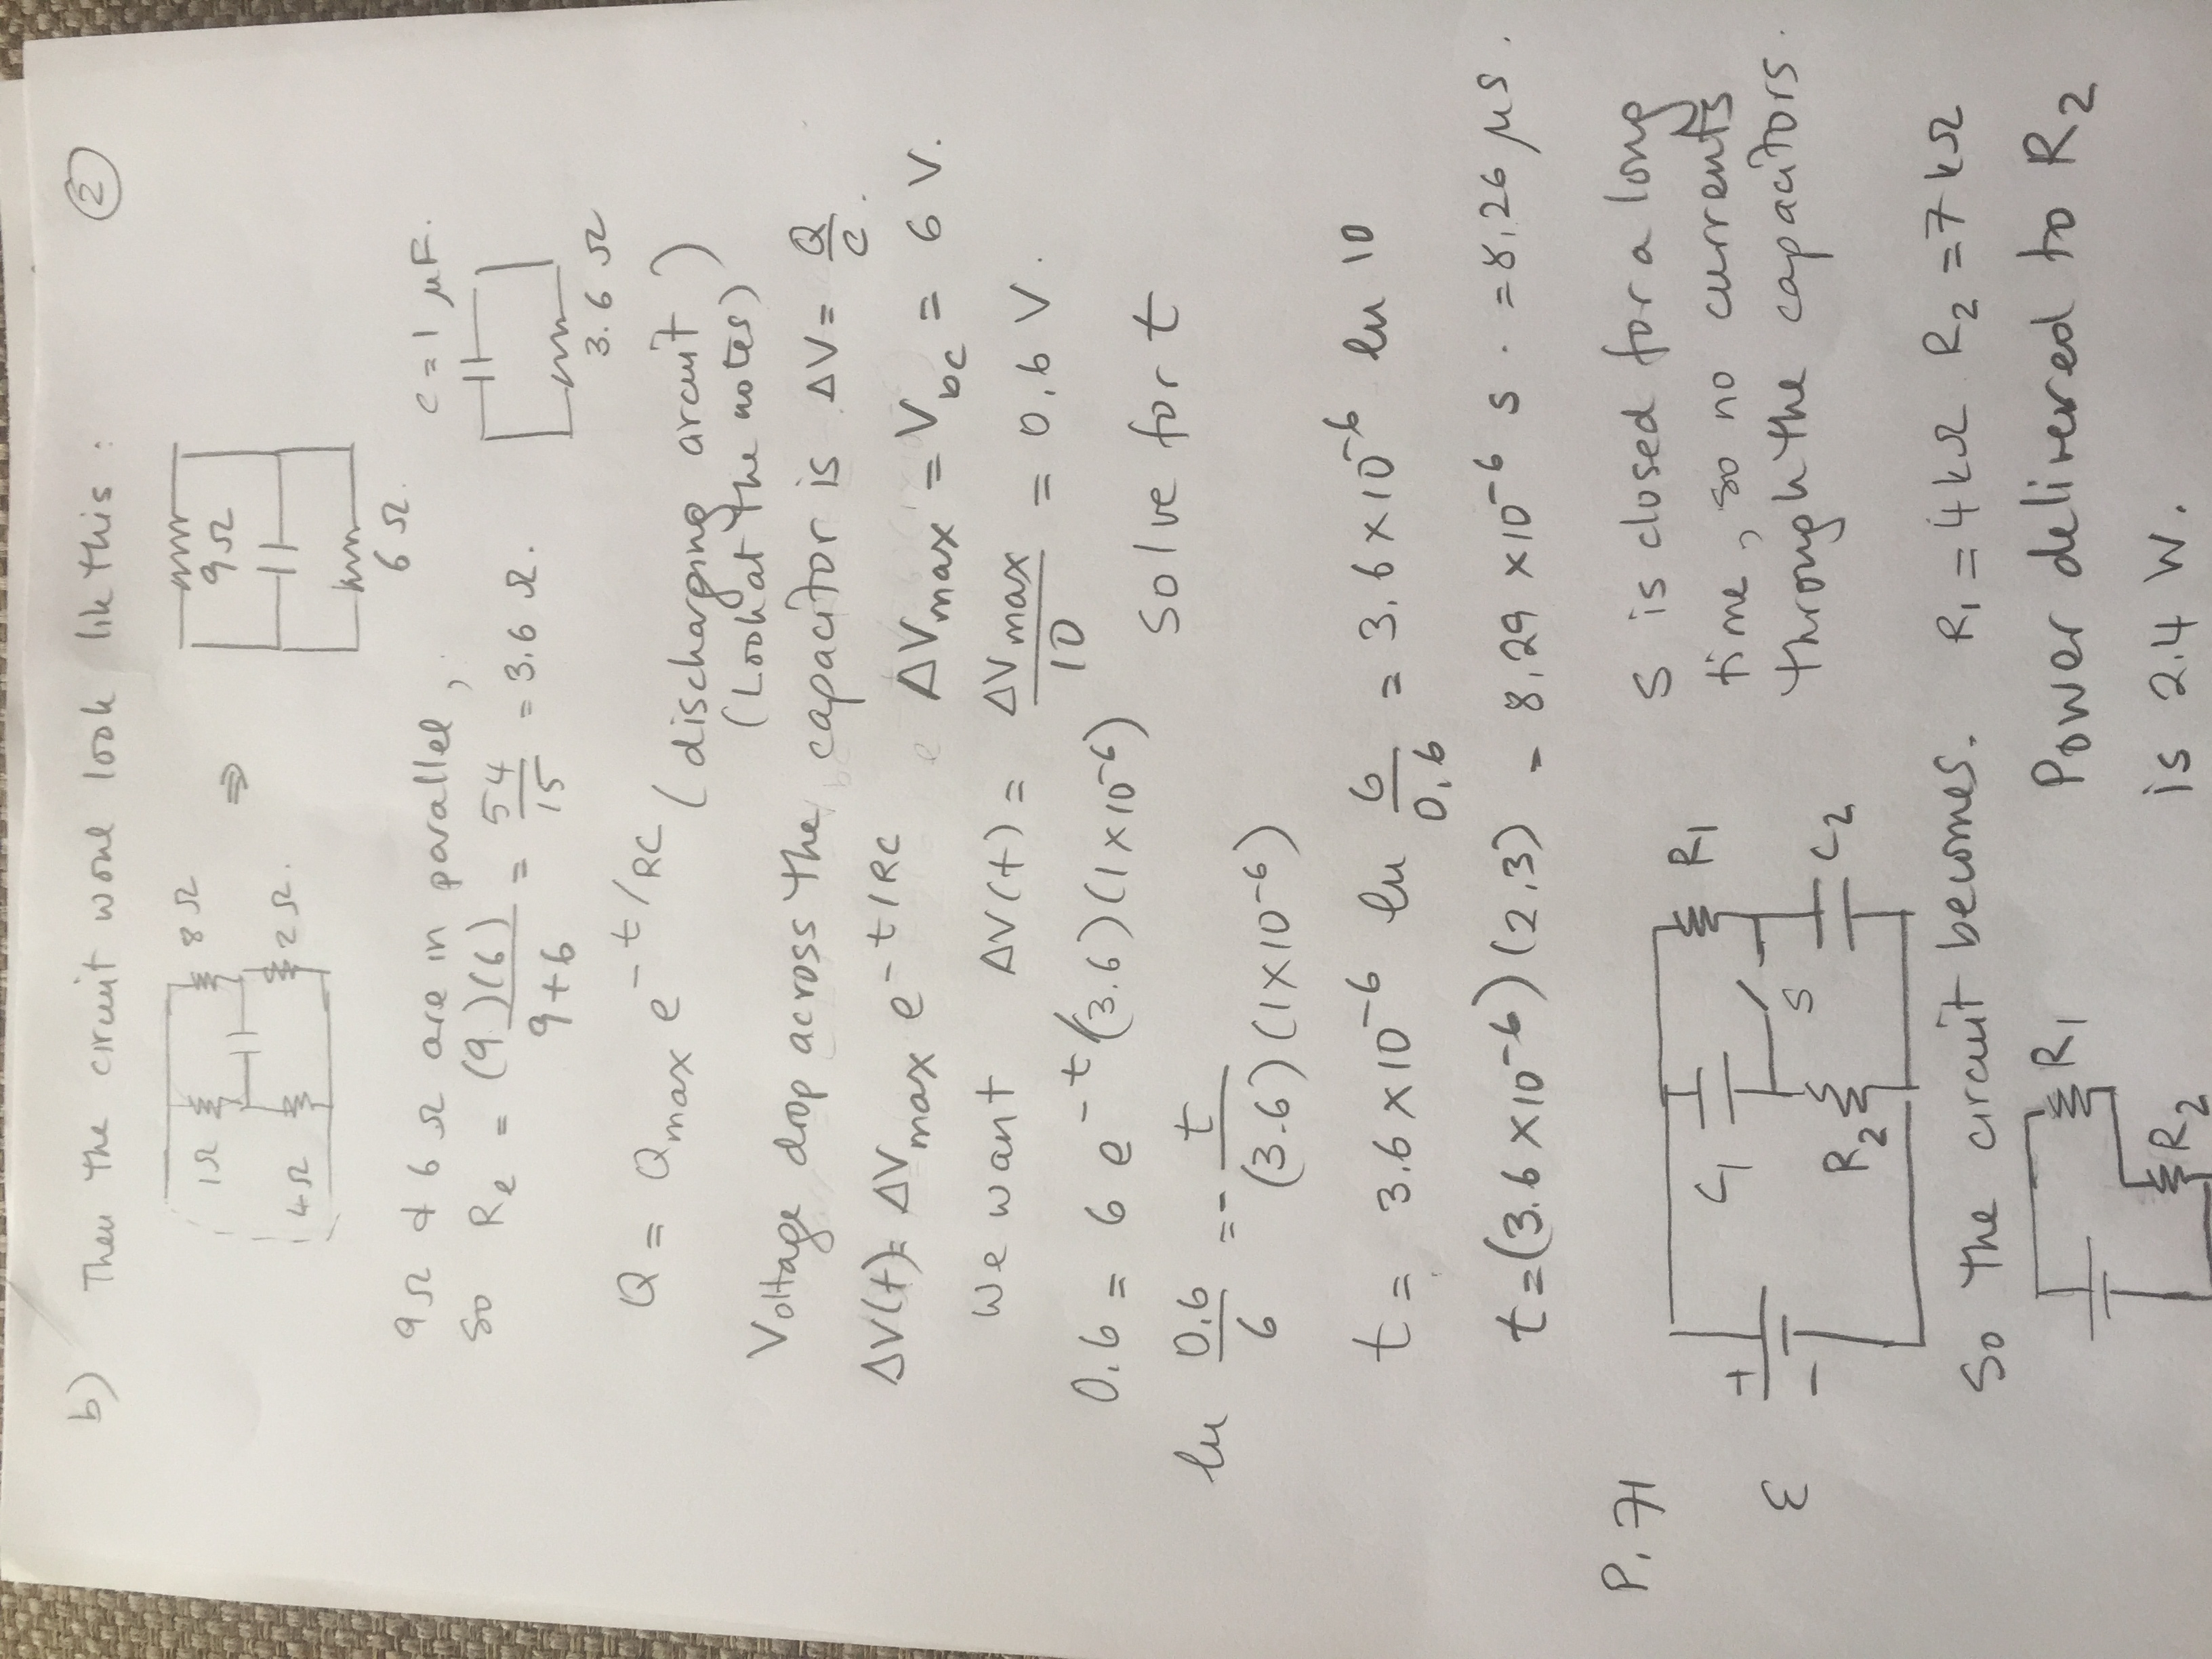 b) Then the circuit woul look lik this : 2
1Ω 8Ω
9Ω
4Ω 2Ω.
6Ω.
9Ω & 6Ω are in parallel, C = 1 μF.
So Re = (9)(6) / 9+6 = 54/15 = 3.6 Ω.
3.6 Ω
Q = Qmax e^-t/RC (discharging circuit)
(Look at the notes)
Voltage drop across the capacitor is ΔV = Q/C.
ΔV(t) = ΔVmax e^-t/RC ΔVmax = Vbc = 6 V.
We want ΔV(t) = ΔVmax/10 = 0.6 V.
0.6 = 6 e^-t/(3.6)(1×10^-6) Solve for t
ln 0.6/6 = - t/(3.6)(1×10^-6)
t = 3.6×10^-6 ln 6/0.6 = 3.6×10^-6 ln 10
t = (3.6×10^-6)(2.3) = 8.29×10^-6 s. = 8.26 μs.
P. 71
S is closed for a long
time, so no currents
through the capacitors.
+ C1 R1
ε S
- R2 C2
So the circuit becomes. R1 = 4kΩ R2 = 7kΩ
R1 Power delivered to R2
R2 is 2.4 W.